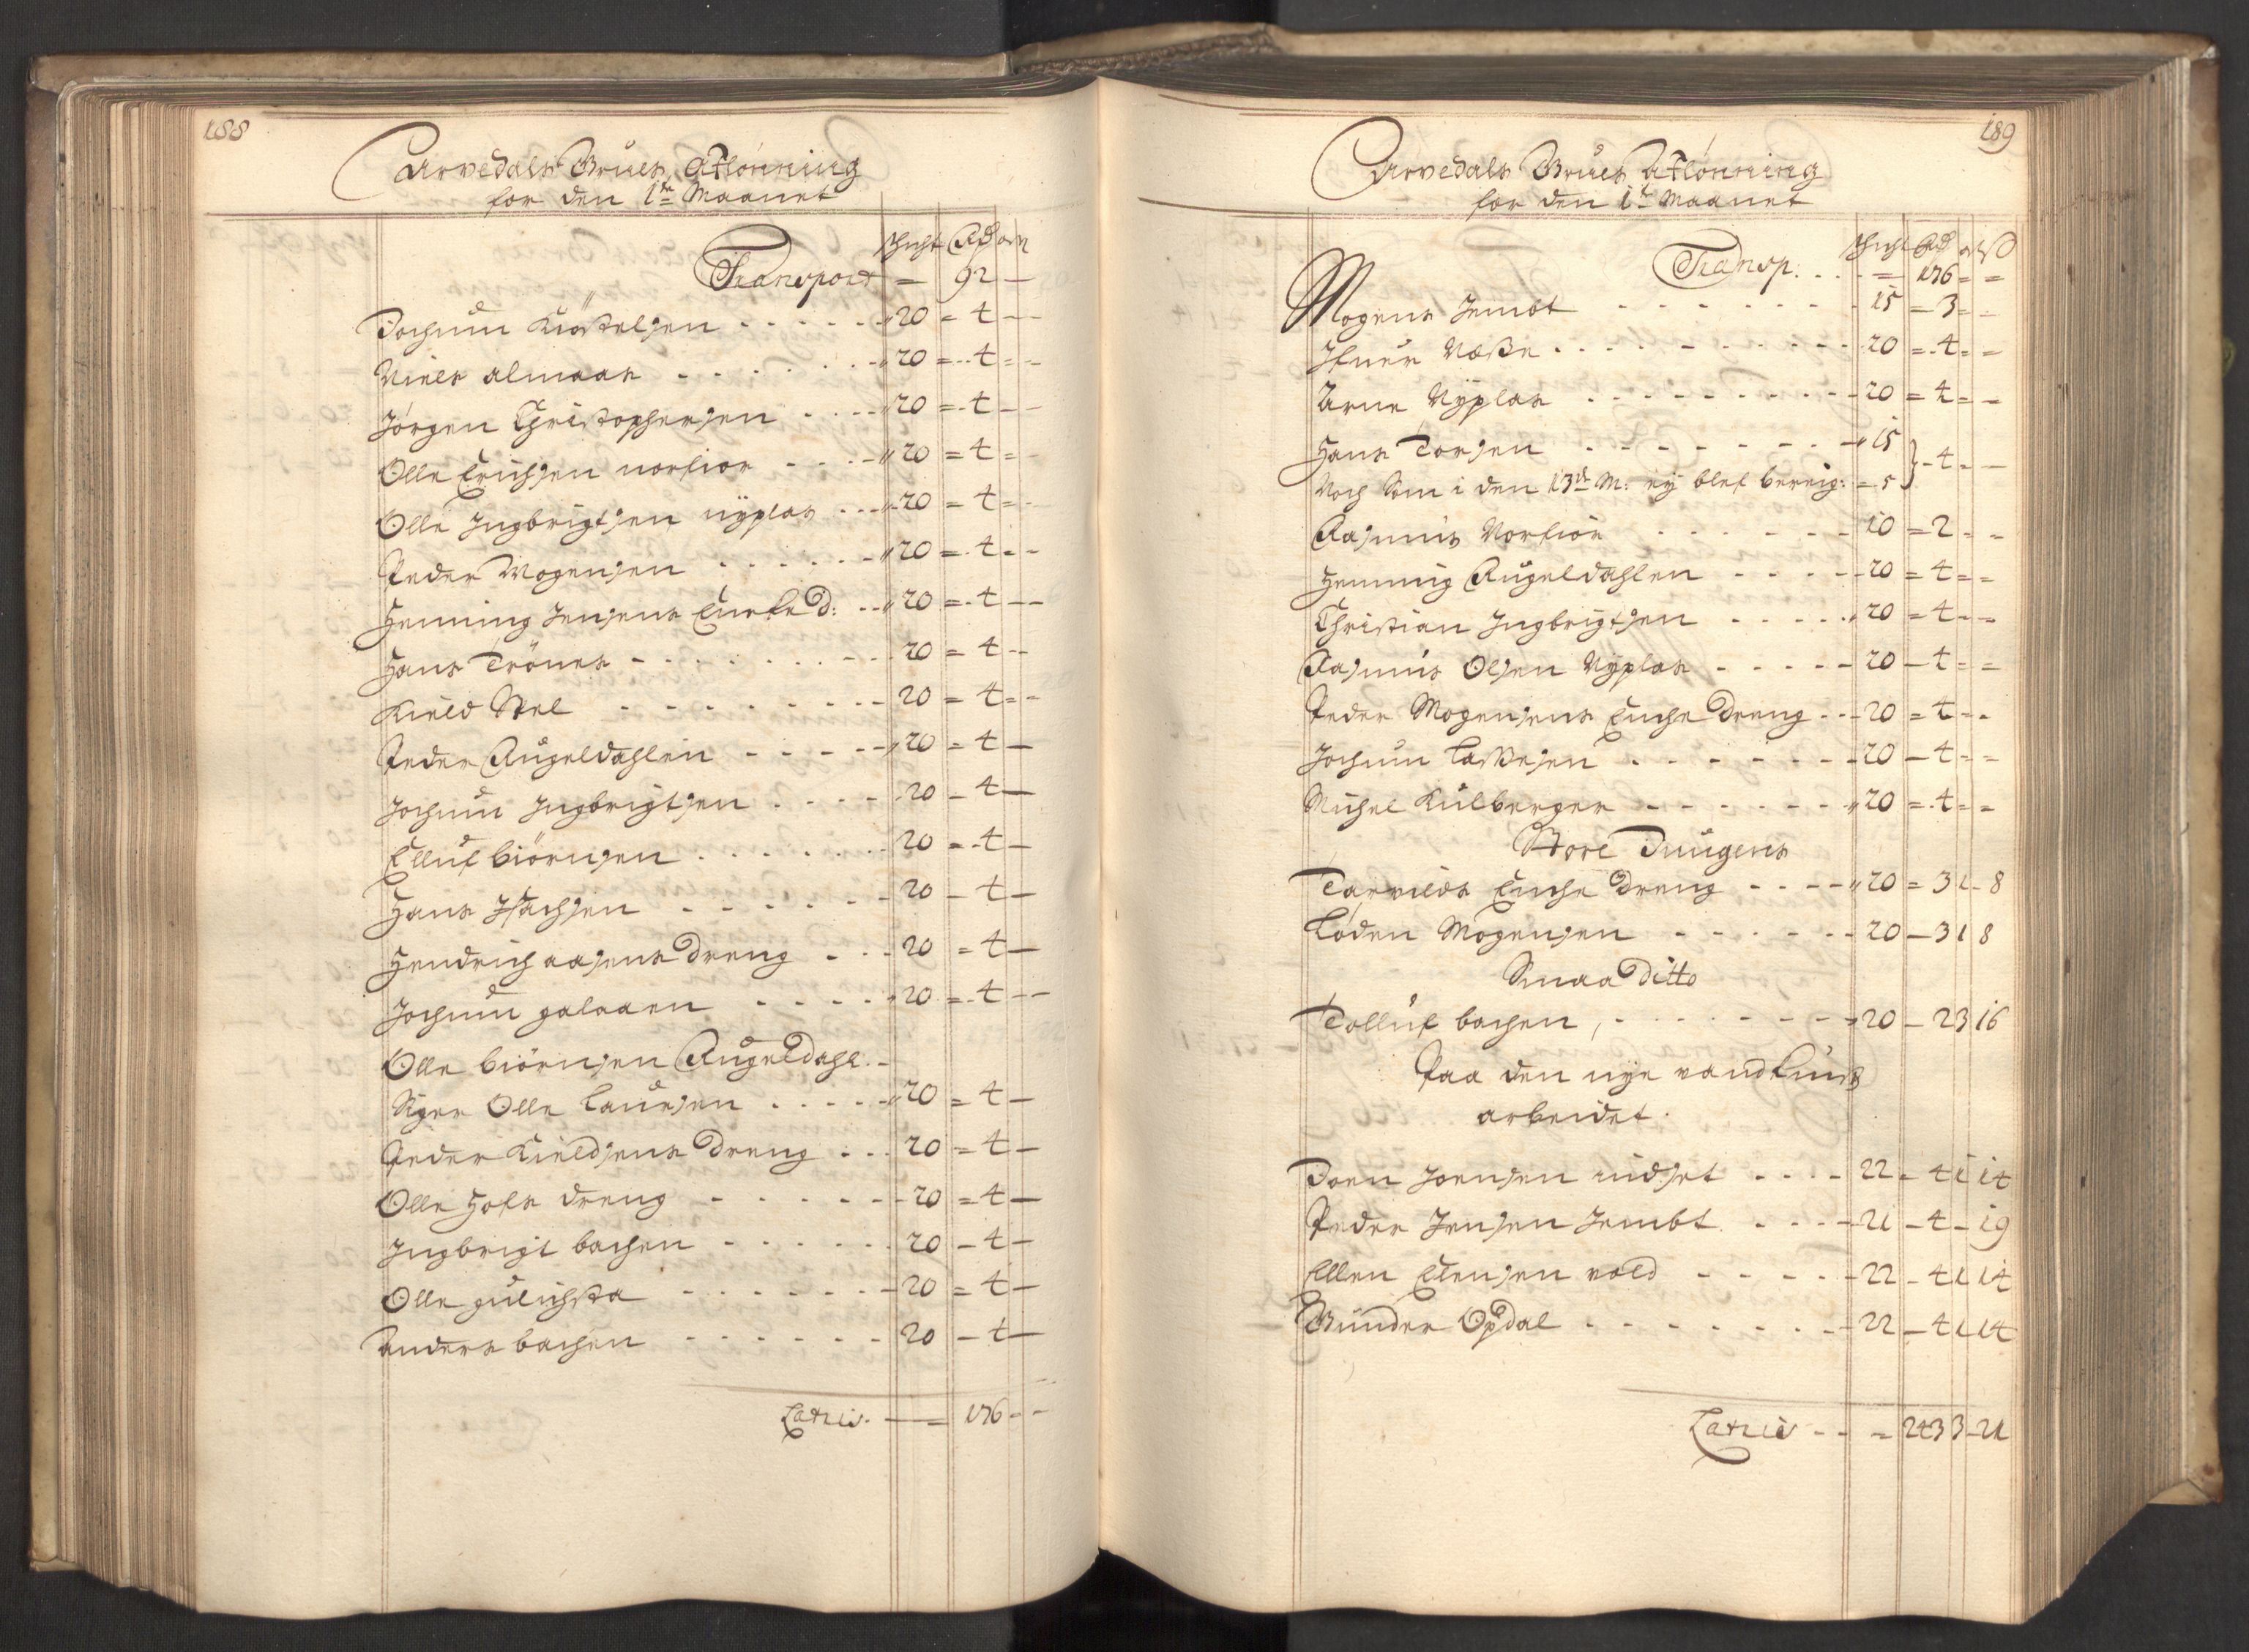 188
Arvedals Grues Afløning
for den 1te Maanet
Schicht Rdr ort
Transport — 92 —
Jochum Kiøstelsen - - - - - 20 = 4 - -
Niels Almaas - - - - - 20 = 4 = -
Jørgen Christophersen - - - - 20 = 4 - -
Olle Erichsen - - - 20 = 4 = -
Olle Ingbrigtsen nÿplas - - - 20 = 4 = -
Peder Mogensen - - - - - 20 = 4 - -
Henning Jensens - - 20 = 4 - -
Hans Trönes - - - - - - 20 = 4 - -
Kield Stel - - - - - - 20 = 4 = -
Peder Rugeldahlen - - - - - 20 = 4 —
Jochum Ingbrigtsen - - - - 20 - 4 —
Elluf Biörnsen - - - - - 20 = 4 —
Hans Isachsen - - - - - 20 - 4 —
Hendrich Aasens Dreng - - - 20 = 4 —
Jochum galaaen - - - - 20 = 4 - -
Olle Biörnsen Rugeldahl. -
Siger Olle Laursen - - - - 20 = 4 —
Peder Kieldsens Dreng - - - 20 = 4 —
Olle Hofs dreng - - - - - 20 = 4 —
Ingbrigt bachen - - - - - 20 - 4 —
Olle gulichsta - - - - - 20 = 4 —
Anders bachen - - - - - 20 - 4 —
Latus. — = 176 = -
189
Arvedals Grues Afløning
for den 1te Maanet
Schicht Rdr ort ß
Transp. - - = 176 = =
Mogens Jembt - - - - - 15 = 3 = -
Ifuer Væsse - - - - - - 20 = 4 = =
Arne Nÿplas - - - - - - 20 = 4 = -
Hans Torsen - - - - - - 15
Noch som i den 13de M: eÿ blef bereig: = 5 } - 4 - —
Rasmus - - - - - - 10 = 2 = -
Henning Rugeldahlen - - - - 20 = 4 = =
Christian Ingbrigtsen - - - - - 20 = 4 - -
Rasmus Olsen Nÿplas - - - - - 20 - 4 = =
Peder Mogensens Enche Dreng - - - 20 = 4 - -
Jochum Lassesen - - - - - - 20 - 4 = =
Michel Kulberger - - - - - - 20 = 4 = =
Store Jungens
Tarvilds Enche Dreng - - - - 20 = 3 1 - 8
Løden Mogensen - - - - - - 20 - 3 1 8
Smaa Ditto
Tolluf bachen, - - - - - - 20 - 2 3 16
Paa den nye vand kunst
arbeidet.
Joen Joensen - - - - 22 - 4 1 14
Peder Jensen Jembt - - - - 21 - 4 - 19
Ellen Ellensen vold - - - - - 22 - 4 1 14
Gunder Opdal - - - - - - 22 - 4 1 14
Latus - - = 243 3 - 21